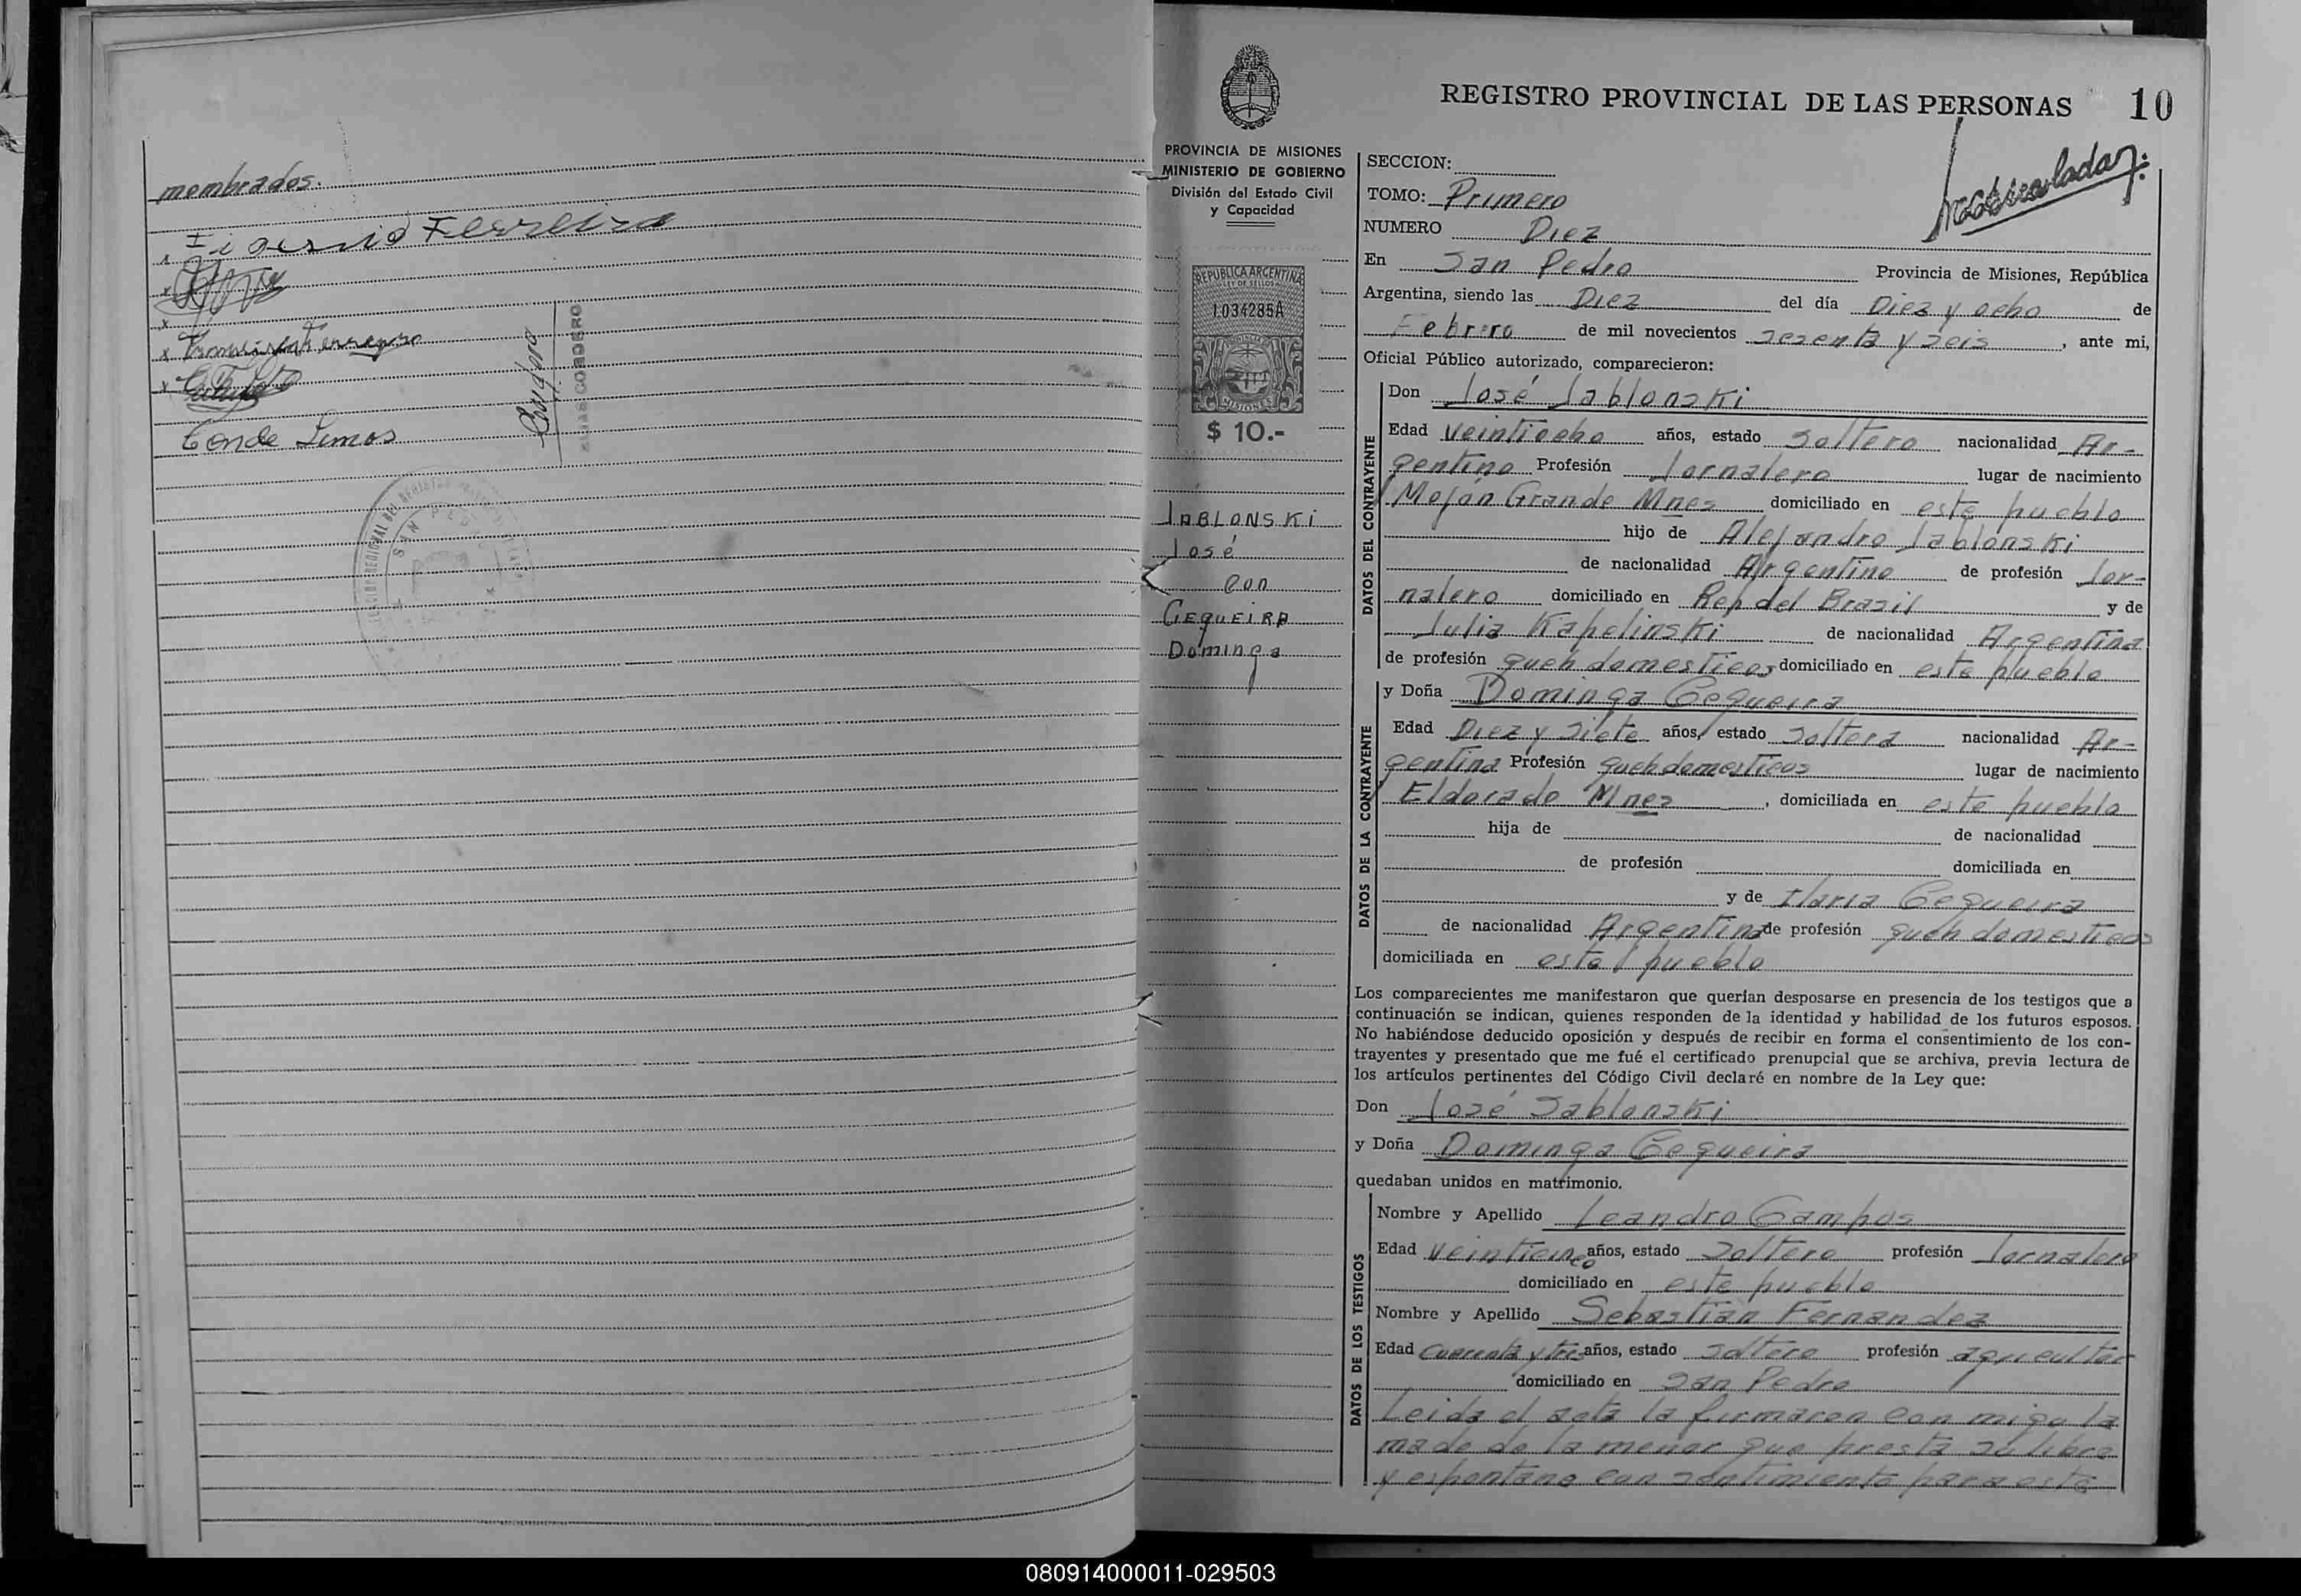 membrados.
Ferreira
Conde Lemos
Cordero
ELIAS CORDERO
SAN PEDRO
REGISTRO PROVINCIAL DE LAS PERSONAS 10
PROVINCIA DE MISIONES
MINISTERIO DE GOBIERNO
División del Estado Civil
y Capacidad
REPUBLICA ARGENTINA
LEY DE SELLOS
1034285A
MISIONES
$ 10.-
JABLONSKi
José
con
CEQUEiRA
Dominga
SECCION:
TOMO: Primero
NUMERO Diez
En San Pedro Provincia de Misiones, República
Argentina, siendo las Diez del día Diez y ocho de
Febrero de mil novecientos sesenta y seis, ante mi,
Oficial Público autorizado, comparecieron:
DATOS DEL CONTRAYENTE
Don José Jablonski
Edad veintiocho años, estado soltero nacionalidad Ar-
gentino Profesión Jornalero lugar de nacimiento
Mojón Grande Mnes domiciliado en este pueblo
hijo de Alejandro Jablonski
de nacionalidad Argentino de profesión Jor-
nalero domiciliado en Rep del Brasil y de
Julia Kapelinski de nacionalidad Argentina
de profesión queh domesticos domiciliado en este pueblo
DATOS DE LA CONTRAYENTE
y Doña Dominga Cequeira
Edad Diez y siete años, estado soltera nacionalidad Ar-
gentina Profesión queh domesticos lugar de nacimiento
Eldorado Mnes, domiciliada en este pueblo
hija de de nacionalidad
de profesión domiciliada en
y de Ilaria Cequeira
de nacionalidad Argentina de profesión queh domesticos
domiciliada en este pueblo
Los comparecientes me manifestaron que querían desposarse en presencia de los testigos que a
continuación se indican, quienes responden de la identidad y habilidad de los futuros esposos.
No habiéndose deducido oposición y después de recibir en forma el consentimiento de los con-
trayentes y presentado que me fué el certificado prenupcial que se archiva, previa lectura de
los artículos pertinentes del Código Civil declaré en nombre de la Ley que:
Don José Jablonski
y Doña Dominga Cequeira
quedaban unidos en matrimonio.
DATOS DE LOS TESTIGOS
Nombre y Apellido Leandro Campos
Edad veinticinco años, estado soltero profesión Jornalero
domiciliado en este pueblo
Nombre y Apellido Sebastián Fernandez
Edad Cuarenta y tres años, estado soltero profesión agricultor
domiciliado en San Pedro
Leida el acta la firmaron con migo la
made de la menor que presta su libre
y espontano con sentimiento para este
080914000011-029503